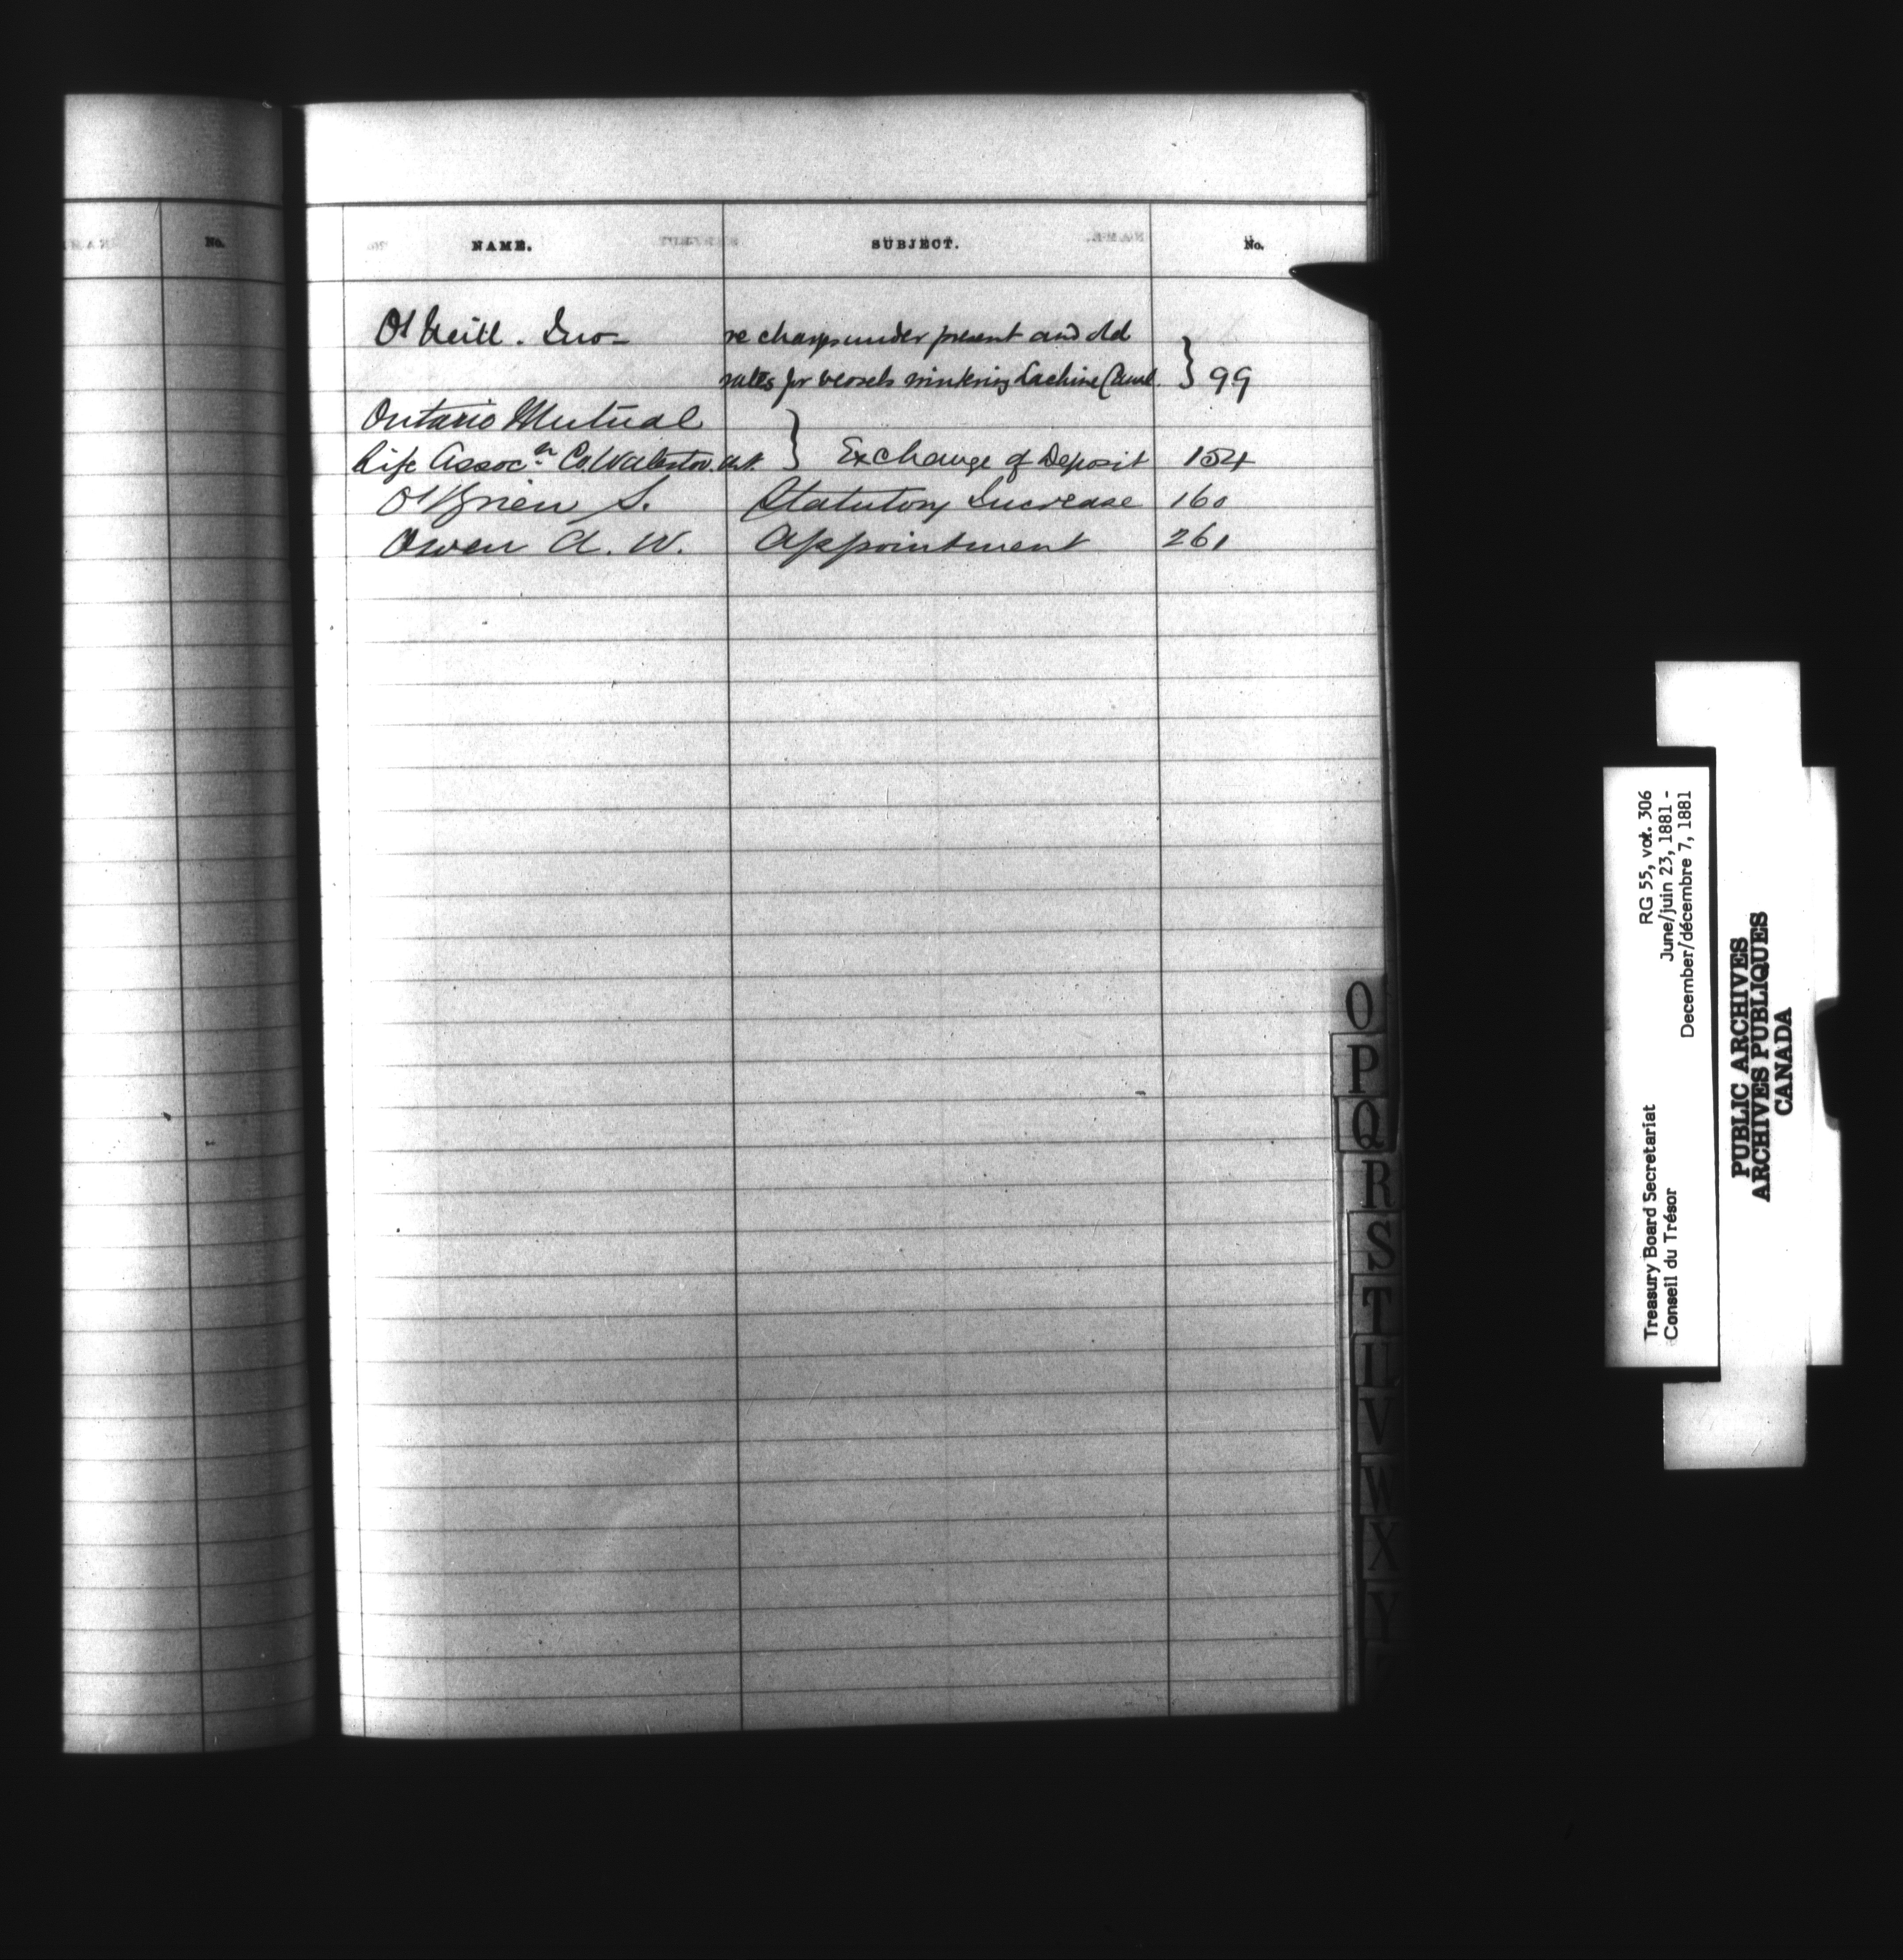 No.
NAME. SUBJECT. No.
O'Neill. Jno- re charges under present and old
rates for vessels wintering Lachine Canal } 99
Ontario Mutual
Life Assocn Co Waterloo Ont. } Exchange of Deposit 154
O'Brien S. Statutory Increase 160
Owen A. W. Appointment 261
O
P
Q
R
S
T
U
V
W
X
Y
Treasury Board Secretariat RG 55, vol. 306
Conseil du Trésor June/juin 23, 1881 -
December/décembre 7, 1881
PUBLIC ARCHIVES
ARCHIVES PUBLIQUES
CANADA